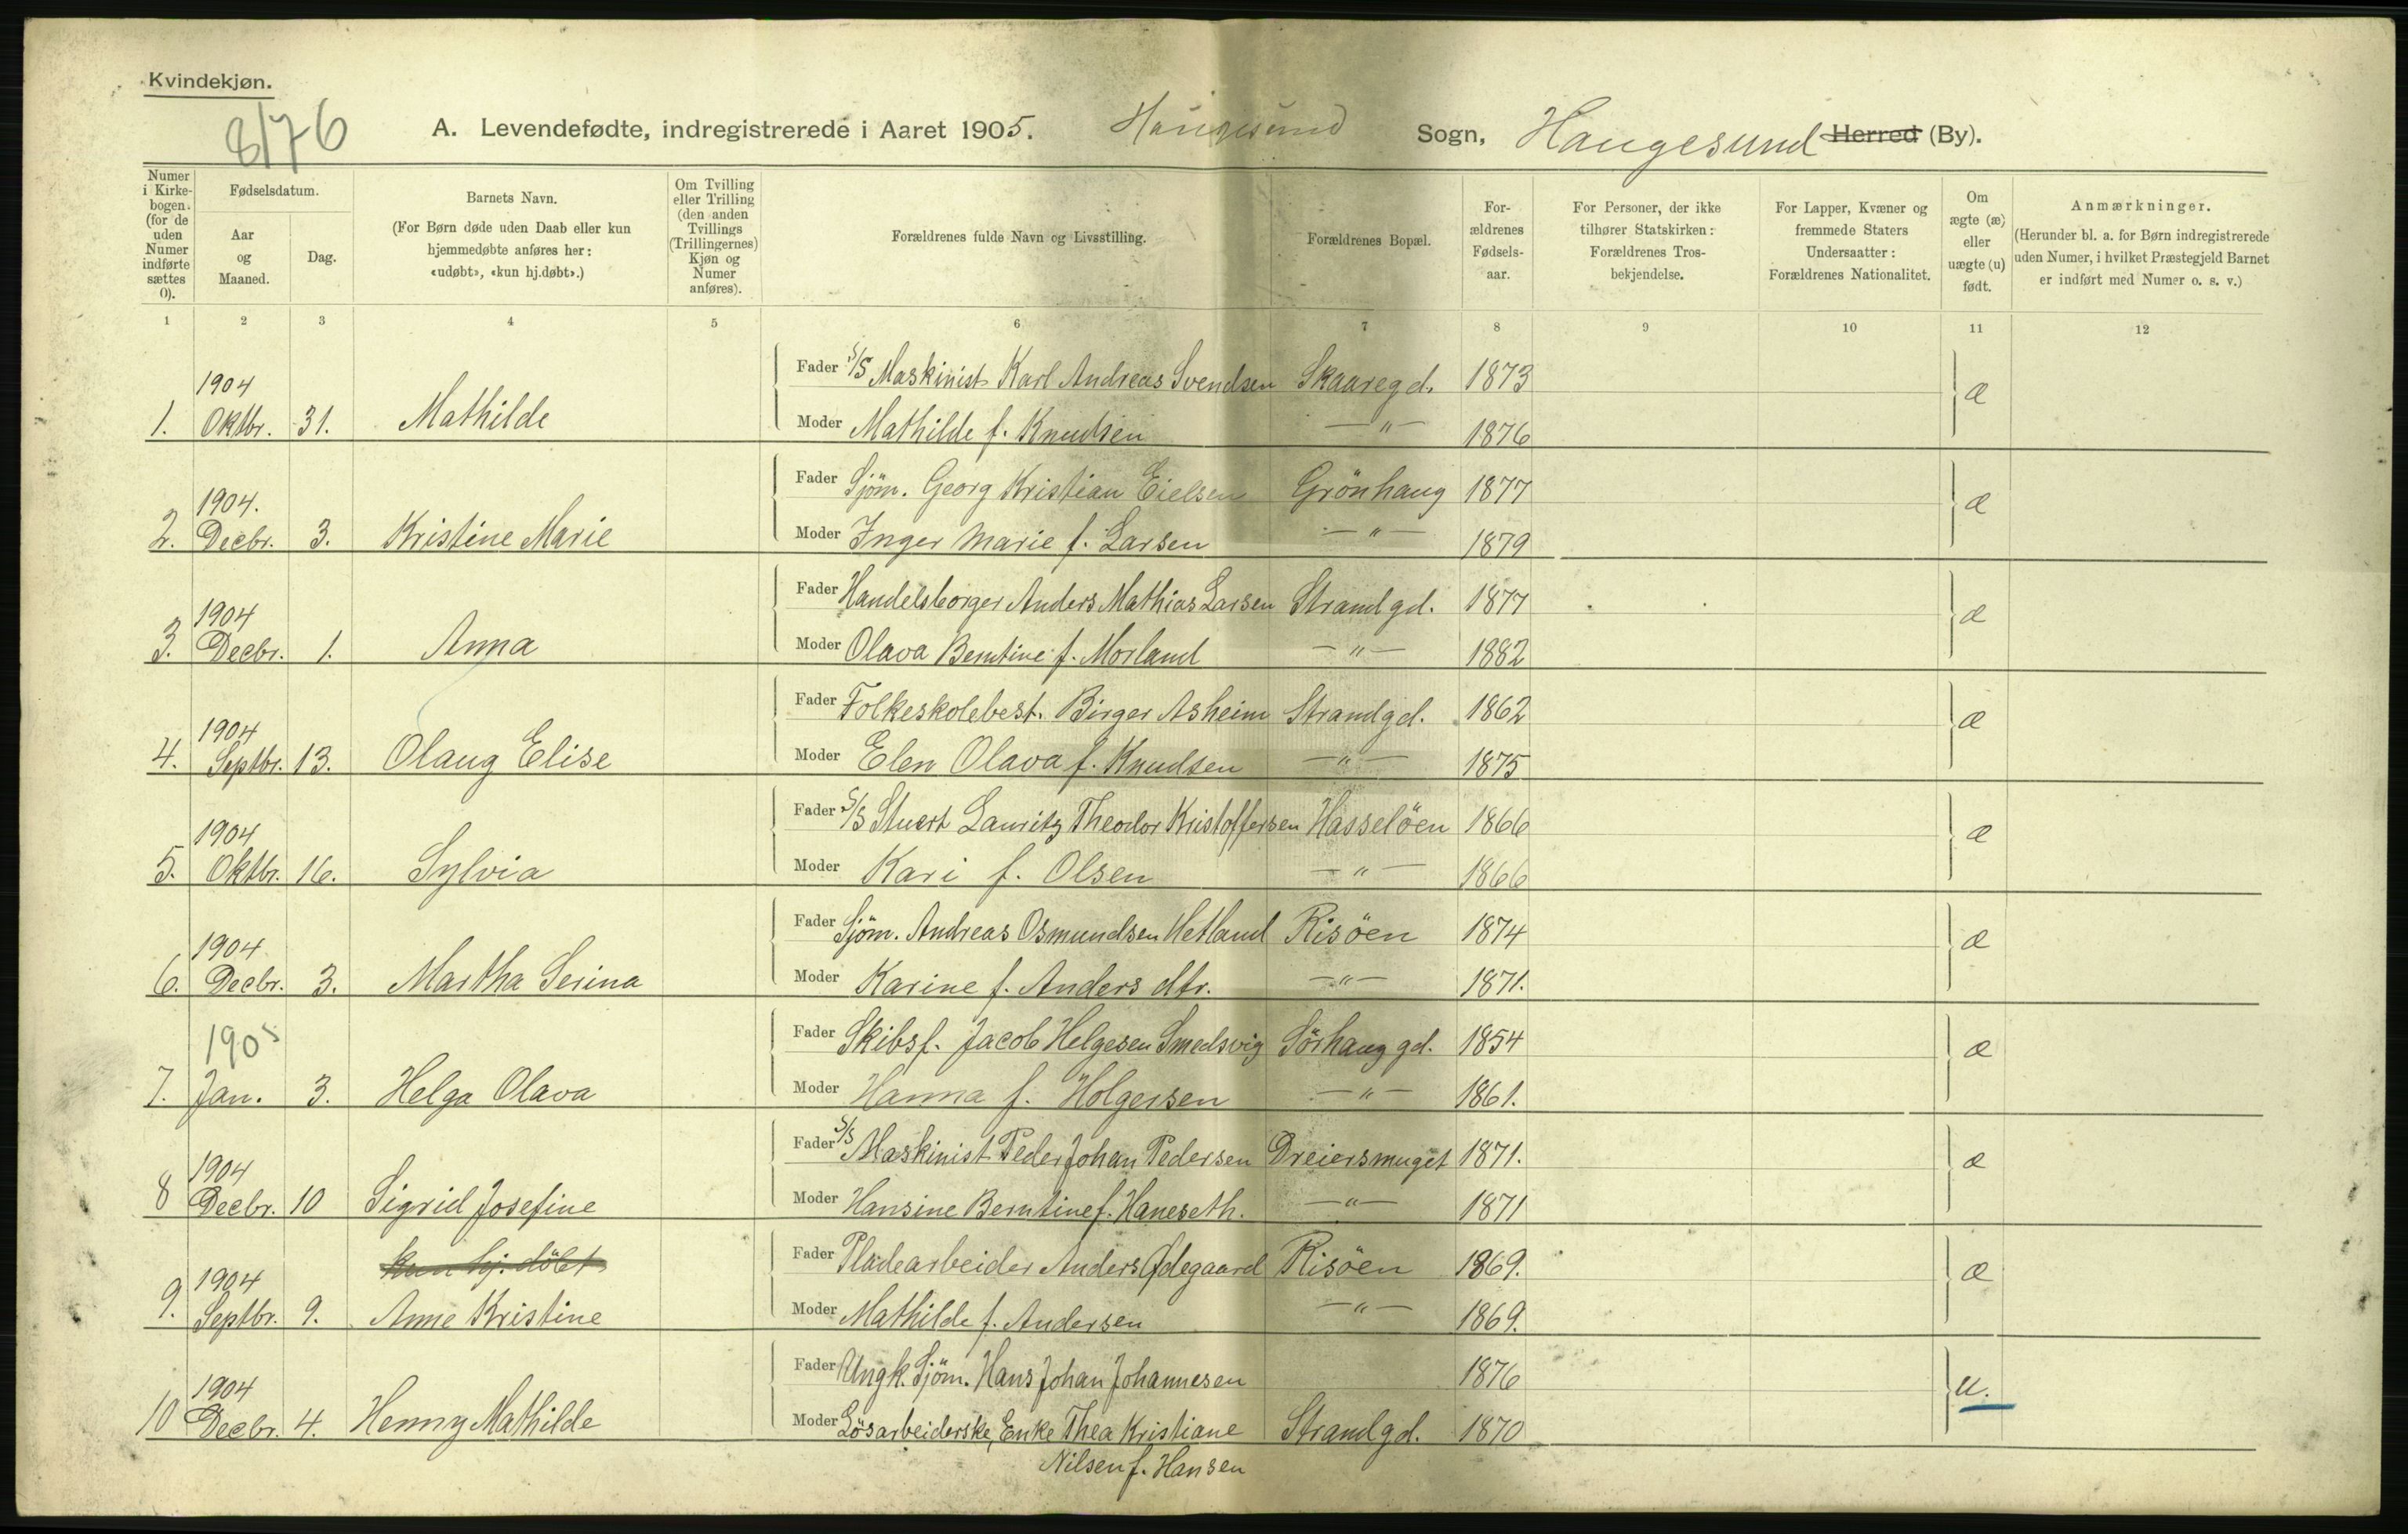 Kvindekjøn.
8/76
A. Levendefødte, indregistrerede i Aaret 1905. Haugesund Sogn, Haugesund Herred (By).
Numer i Kirkebogen (for de uden Numer indførte sættes 0).
Fødselsdatum.
Aar og Maaned.
Dag.
Barnets Navn.
(For Børn døde uden Daab eller kun hjemmedøbte anføres her: «udøbt», «kun hj.døbt».)
Om Tvilling eller Trilling (den anden Tvillings (Trillingernes) Kjøn og Numer anføres).
Forældrenes fulde Navn og Livsstilling.
Forældrenes Bopæl.
Forældrenes Fødselsaar.
For Personer, der ikke tilhører Statskirken: Forældrenes Trosbekjendelse.
For Lapper, Kvæner og fremmede Staters Undersaatter: Forældrenes Nationalitet.
Om ægte (æ) eller uægte (u) født.
Anmærkninger.
(Herunder bl. a. for Børn indregistrerede uden Numer, i hvilket Præstegjeld Barnet er indført med Numer o. s. v.)
1 2 3 4 5 6 7 8 9 10 11 12
Fader S/S Maskinist Karl Andreas Svendsen Skaaregd. 1873
1904 æ
1. Oktbr. 31. Mathilde Moder Mathilde f. Knudsen —"— 1876
Fader Sjöm. Georg Kristian Eielsen Grönhaug 1877
1904. æ
2. Decbr. 3. Kristine Marie Moder Inger Marie f. Larsen —"— 1879
Fader Handelsborger Anders Mathias Larsen Strandgd. 1877
1904 æ
3. Decbr. 1. Anna Moder Olava Berntine f. Morland —"— 1882
Fader Folkeskolebest. Birger Asheim Strandgd. 1862
1904 æ
4. Septbr. 13. Olaug Elise Moder Elen Olava f. Knudsen —"— 1875
Fader S/S Stuert Lauritz Theodor Kristoffersen Hasselöen 1866
1904 æ
5. Oktbr. 16. Sylvia Moder Kari f. Olsen —"— 1866
Fader Sjöm. Andreas Osmundsen Hetland Risöen 1874
1904 æ
6. Decbr. 3. Martha Serina Moder Karine f. Anders dtr. —"— 1871.
Fader Skibsf. Jacob Helgesen Smedsvig Sörhauggd. 1854
1905 æ
7. Jan. 3. Helga Olava Moder Hanna f. Holgersen —"— 1861.
Fader S/S Maskinist Peder Johan Pedersen Dreiersmuget 1871.
1904 æ
8 Decbr. 10 Sigrid Josefine Moder Hansine Berntine f. Haneseth. —"— 1871
kun hj. döbt Fader Pladearbeider Anders Ødegaard Risöen 1869.
1904 æ
9. Septbr. 9. Anne Kristine Moder Mathilde f. Andersen —"— 1869.
Fader Ungk. Sjöm. Hans Johan Johannesen 1876
1904 u.
10 Decbr. 4. Henny Mathilde Moder Lösarbeiderske, Enke Thea Kristiane Strandgd. 1870
Nilsen f. Hansen